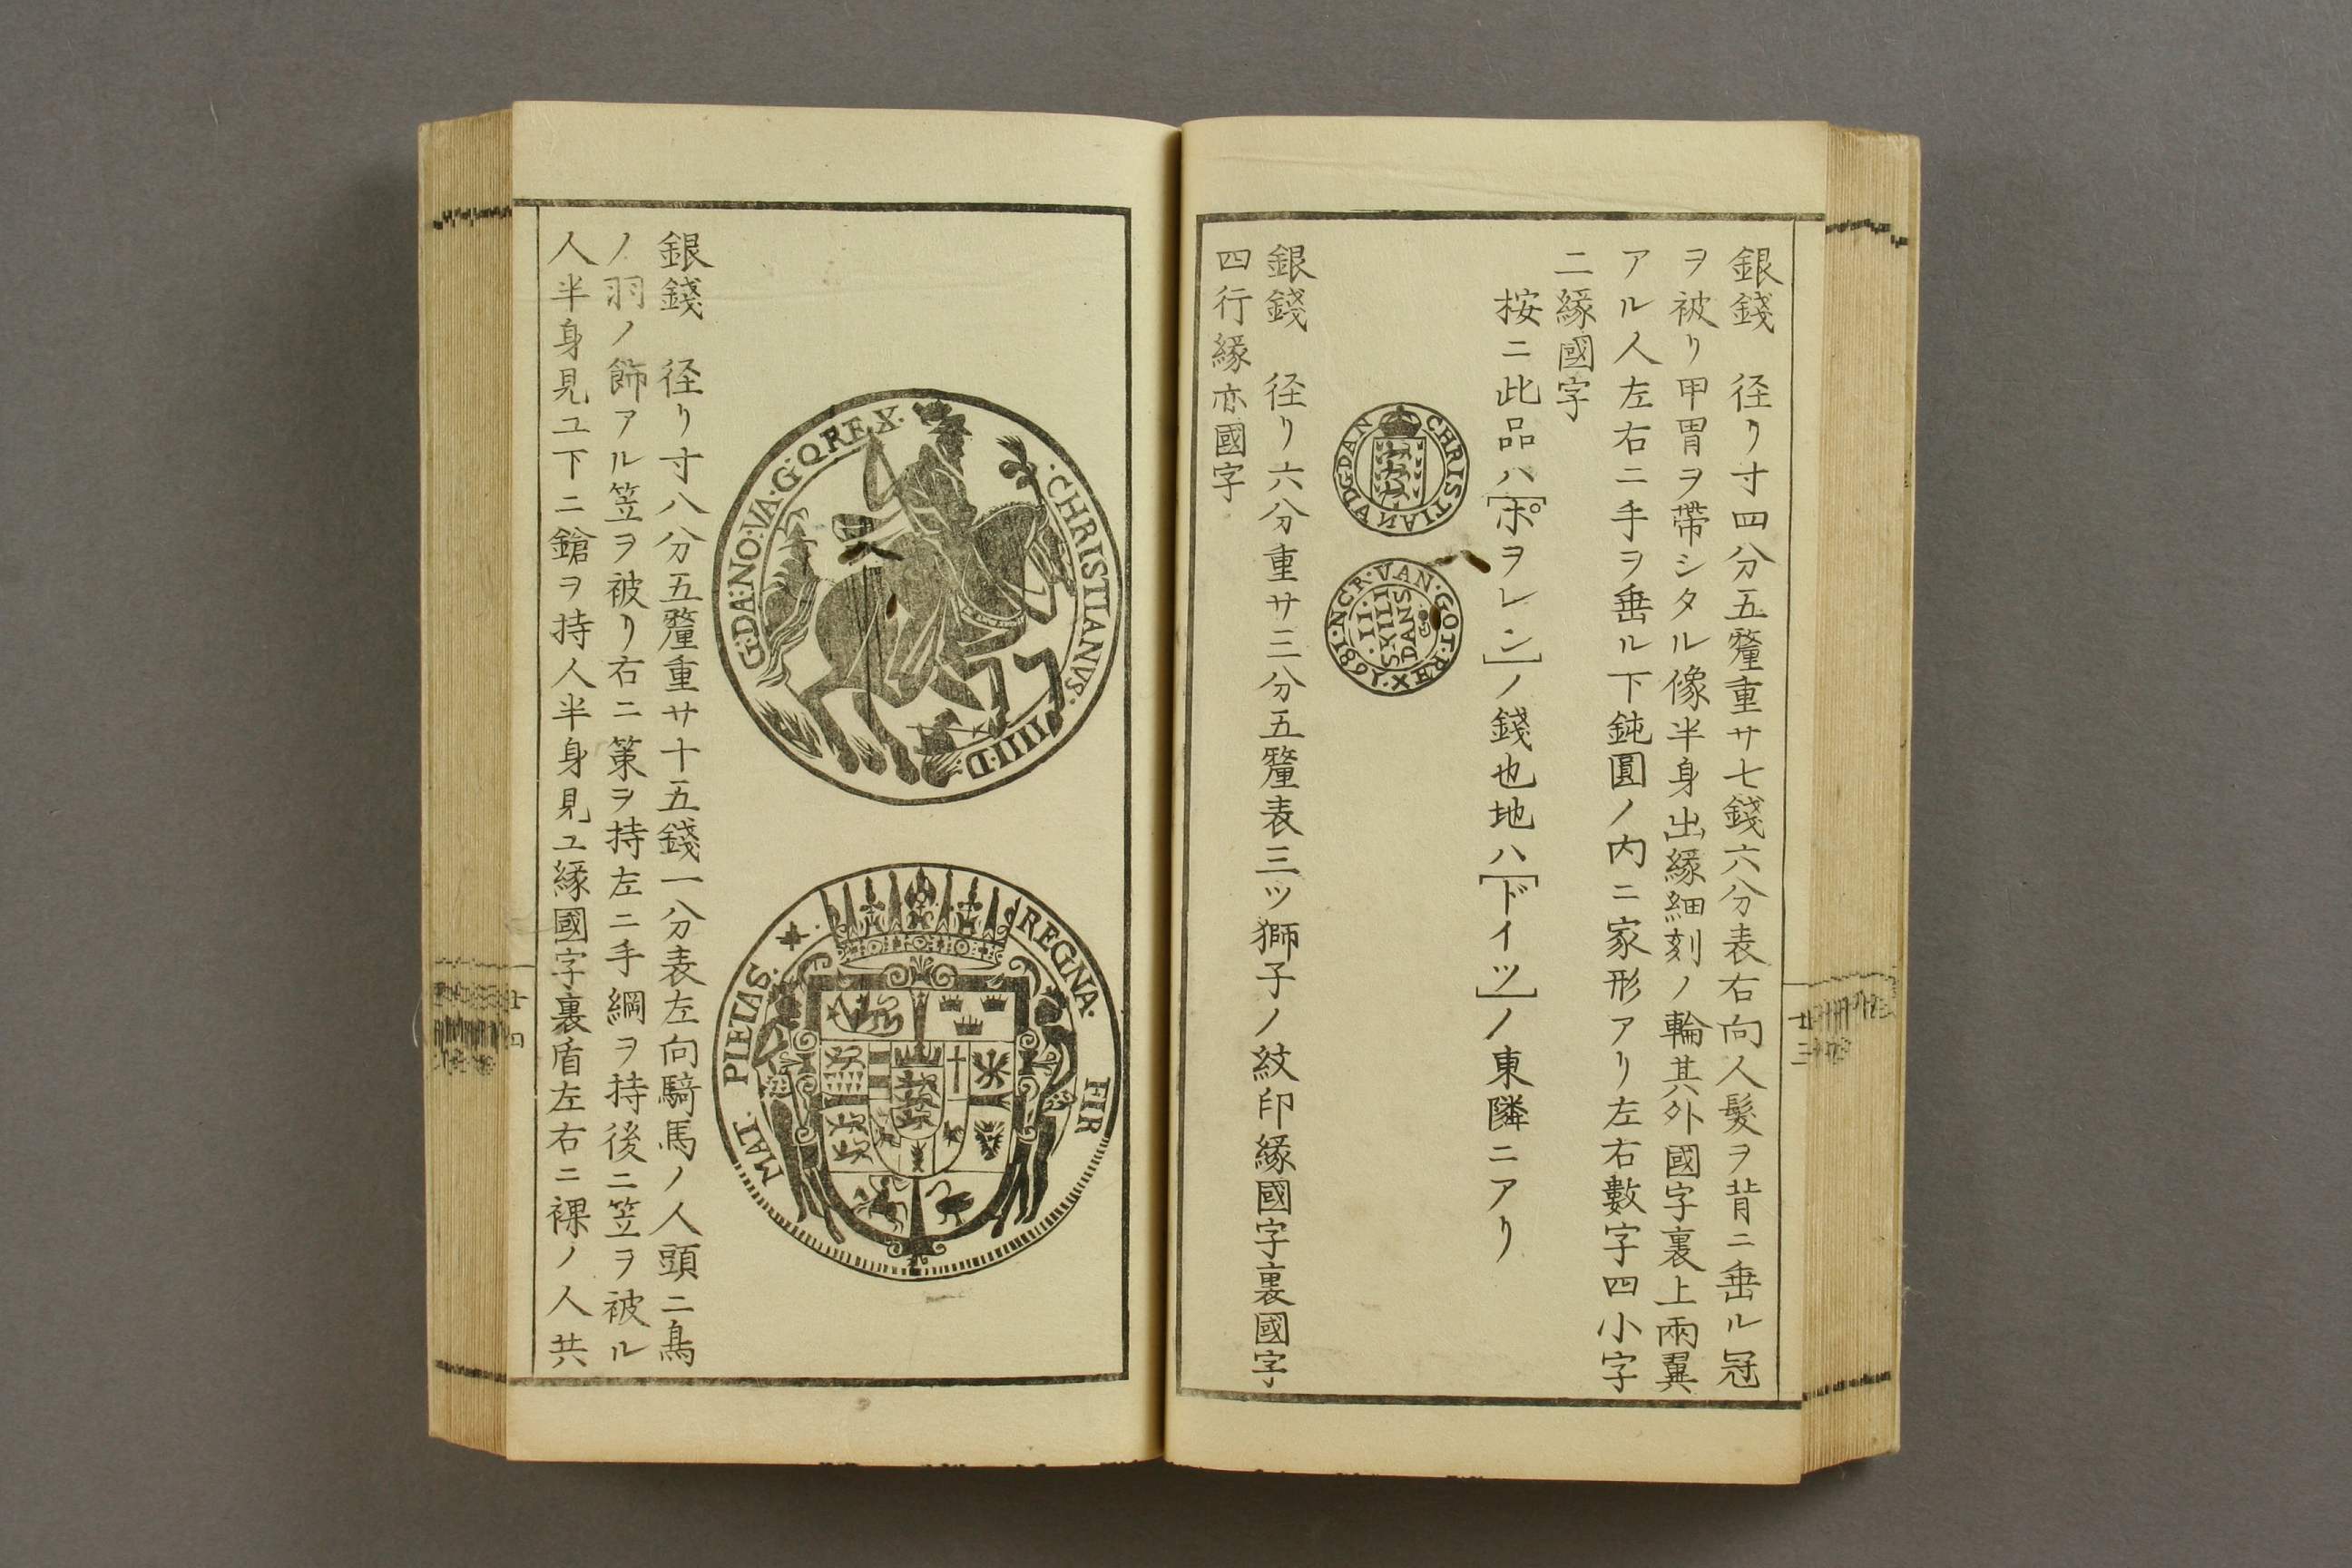 銀錢　径リ寸四分五釐重サ七錢六分表右向人髮ヲ背ニ垂ル冠
ヲ被リ甲冑ヲ帶シタル像半身出緣細刻ノ輪其外國字裏上兩翼
アル人左右ニ手ヲ垂ル下鈍圓ノ内ニ家形アリ左右數字四小字
二緣國字
按ニ此品ハ[ポヲレン]ノ錢也地ハ[ドイツ]ノ東隣ニアリ
CHRISTIANVDGDAN
II
SXILII
DANS
1681·NCR·VAN·GOT·REX
銀錢　径リ六分重サ三分五釐表三ツ獅子ノ紋印緣國字裏國字
四行緣亦國字
廿三
·CHRISTIANVS·IIII·D G:DA:NO:VA·G·QREX·
REGNA· FIR MAT· PIETAS·
銀錢　径リ寸八分五釐重サ十五錢一分表左向騎馬ノ人頭ニ鳥
ノ羽ノ飾アル笠ヲ被リ右ニ策ヲ持左ニ手綱ヲ持後ニ笠ヲ被ル
人半身見ユ下ニ鎗ヲ持人半身見ユ緣國字裏盾左右ニ裸ノ人共
廿四